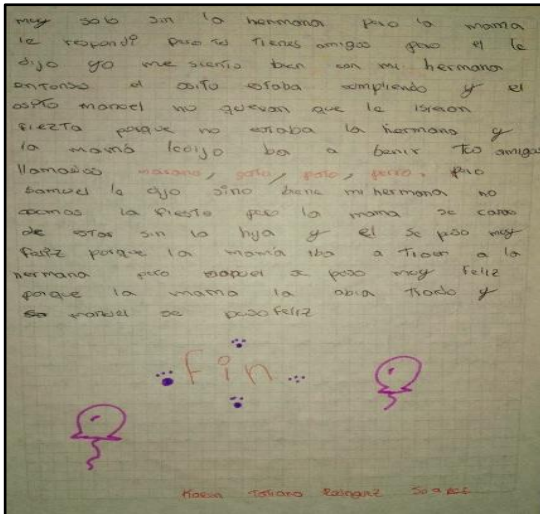 muy solo sin la hermana pero la mama
le respondi pues tu tienes amigos pero el le
dijo yo me siento bien con mi hermana
entonses el osito estaba cumpliendo y el
osito manuel no queran que le isieran
fiezta porque no estaba la hermana y
la mamá ledijo ba a benir tus amigos
llamados marano, gato, pato, perro, pero
samuel le dijo sino biene mi hermana no
asemos la fiesta pero la mama se canso
de estar sin la hija y el se puso muy
feliz porque la mamá iba a traer a la
hermana pero manuel se puso muy feliz
porque la mama la abia traido y
manuel se puso feliz
fin
Tatiana